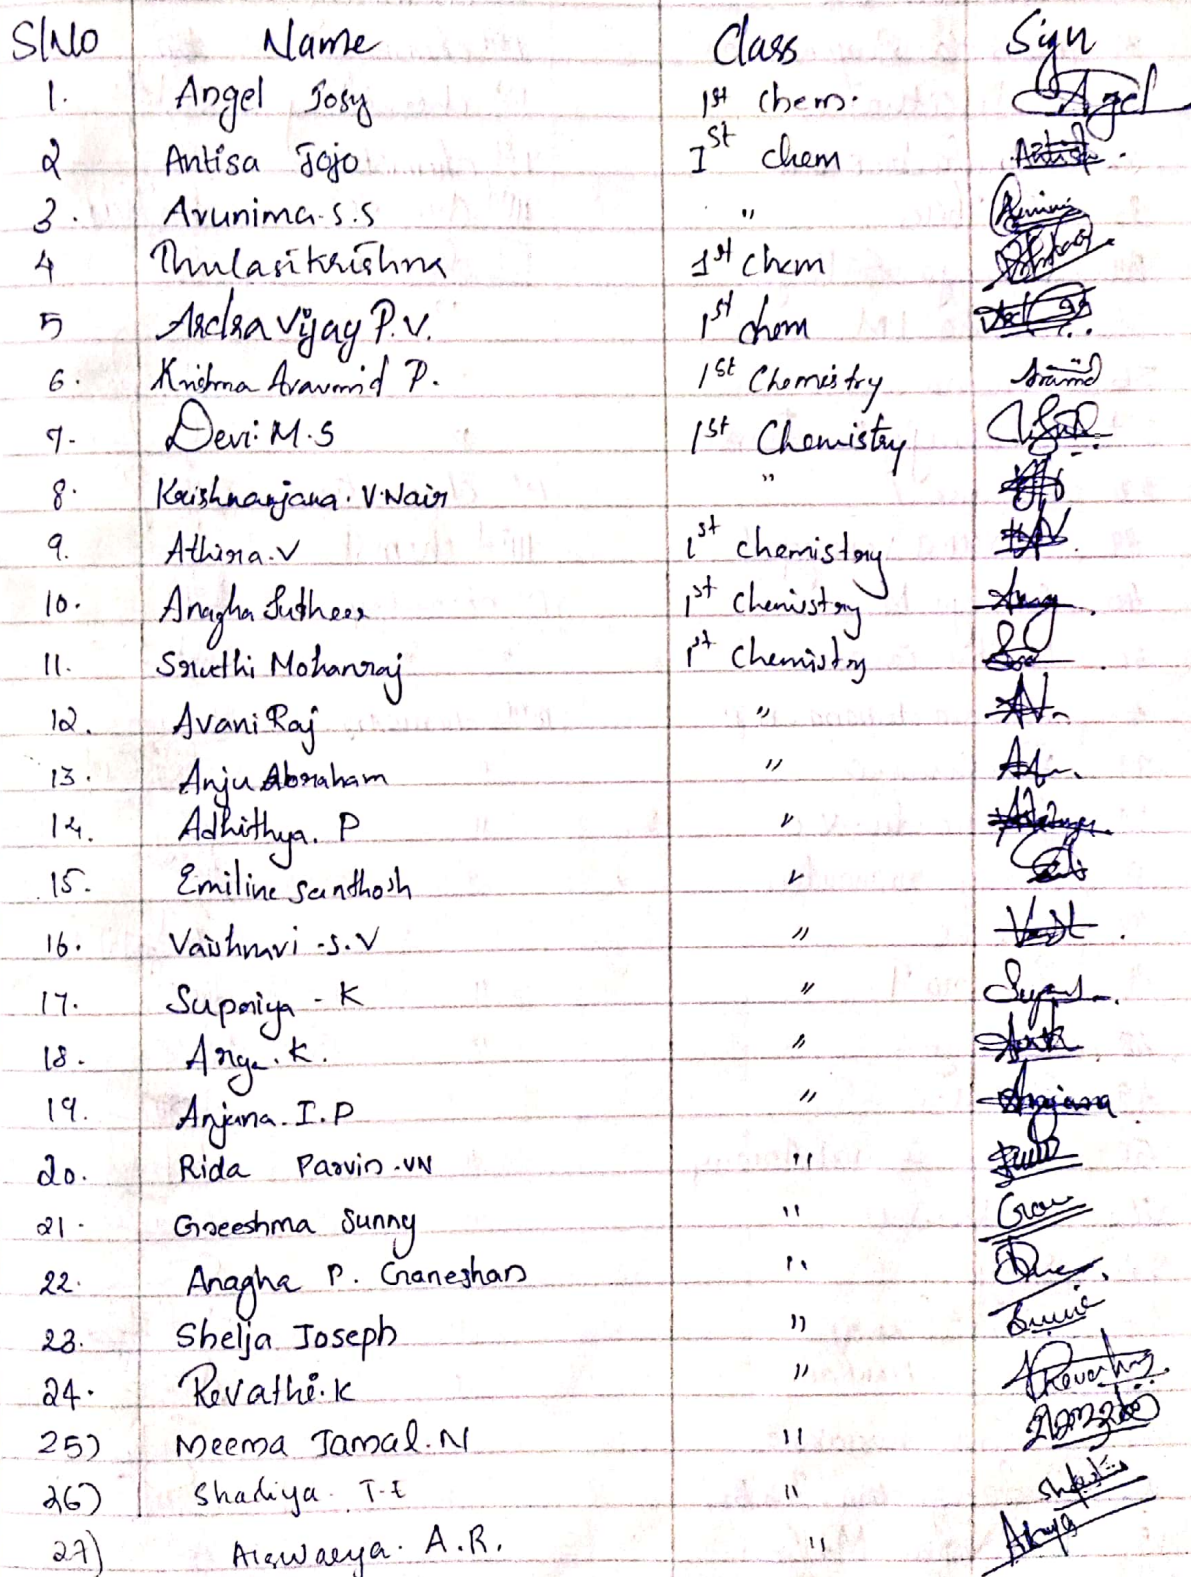 Sl.No Name Class Sign
1. Angel Josy 1st Chem. Agel
2 Antisa Jojo Ist chem
3. Arunima.S.S "
4 Thulasikrishna 1st chem
5 Ardra Vijay P.V. 1st chem
6. Krishna Aravind P. 1st Chemistry
7. Devi.M.S 1st Chemistry
8. Krishnanjana.V.Nair "
9. Athira.V 1st chemistry
10. Anagha Sutheer 1st Chemistry
11. Sruthi Mohanraj 1st Chemistry
12. Avani Raj "
13. Anju Abraham "
14. Adhithya.P "
15. Emiline Santhosh "
16. Vaishnavi -S.V "
17. Supriya - K "
18. K. "
19. Anjana.I.P " Anjana
20. Rida Parvin.VN "
21. Greeshma Sunny "
22. Anagha P. Ganeshan "
23. Shelja Joseph "
24. Revathi.K " Revathy
25) Neema Jamal.N "
26) Shadiya. T.E "
27) Aiswarya. A.R. "